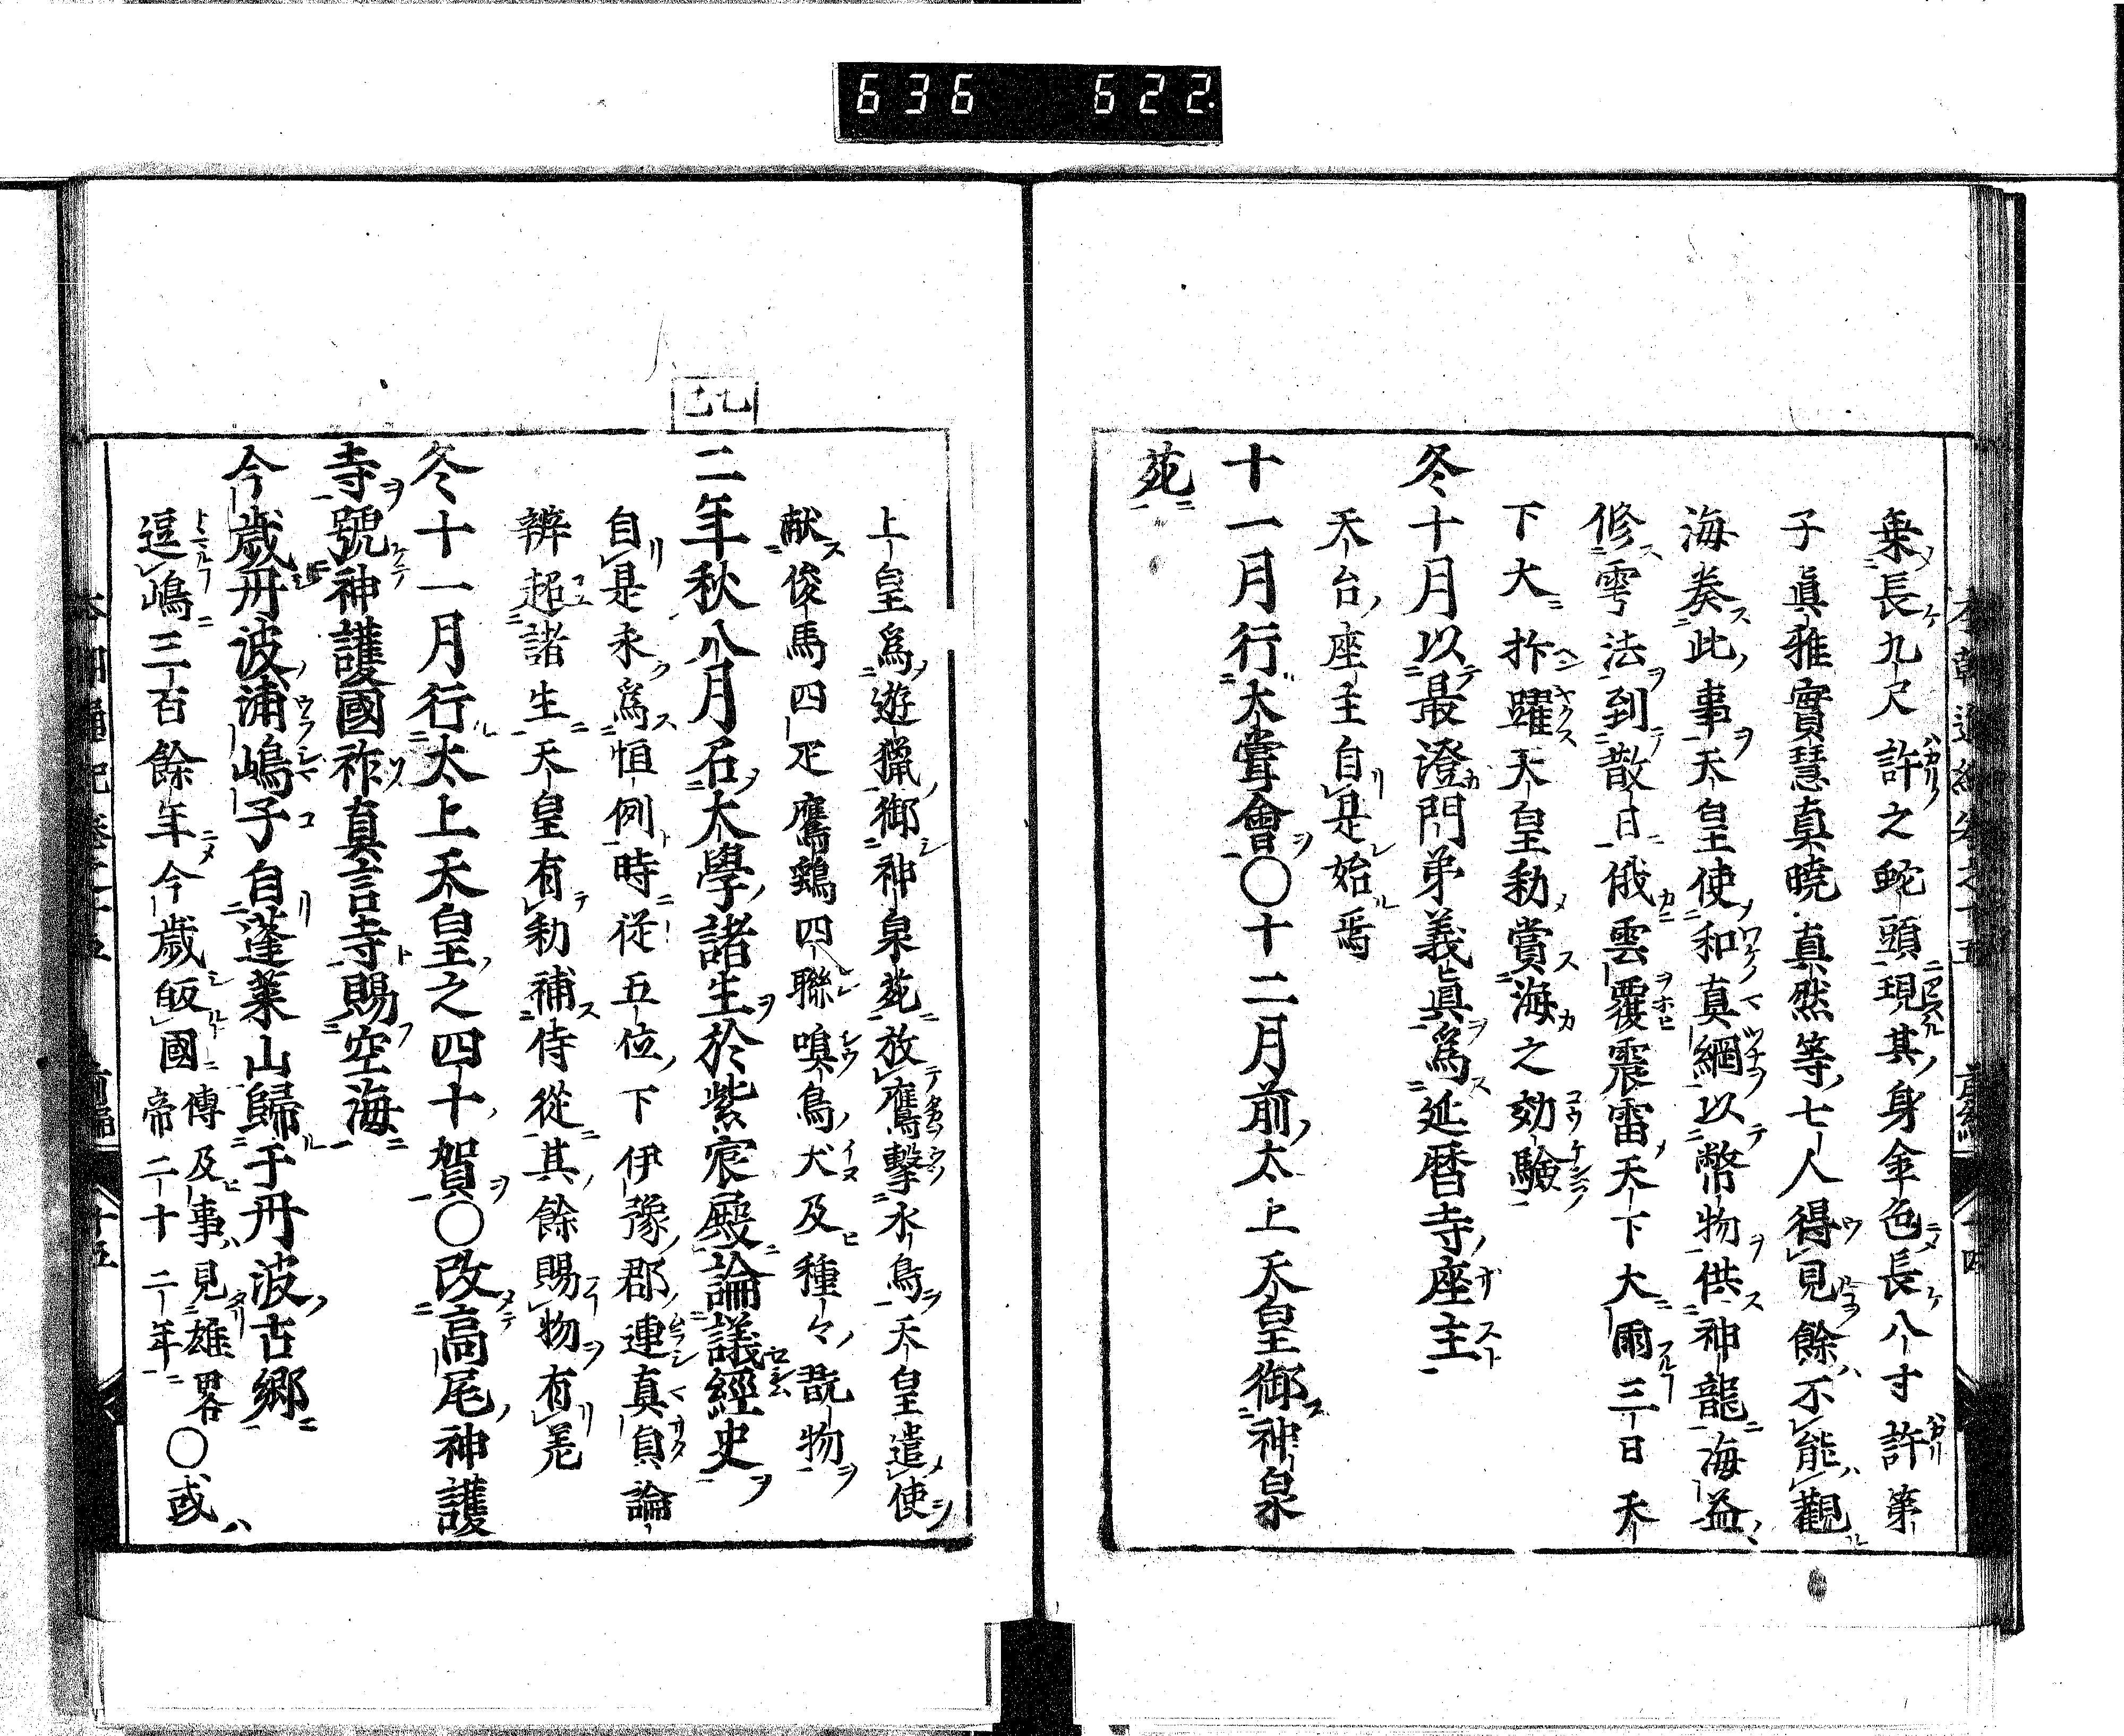 636 622
乗長九尺許之蛇頭現其身金色長八寸許第
子眞雅實慧真曉真然等七人得見餘不能觀
海奏此事天皇使和真綱以幣物供神龍海益
修雩法到散日俄雲覆震雷天下大雨三日天
下大抃躍天皇勑賞海之効驗
冬十月以最澄門弟義眞爲延暦寺座主
天台座主自是始焉
十一月行大嘗會〇十二月前太上天皇御神泉
苑
上皇爲遊猟御神泉苑放鷹撃水鳥天皇遣使
献俊馬四疋鷹鷂四聯嗅鳥犬及種々翫物
乙巳
二年秋八月召大學諸生於紫宸殿論議經史
自是永爲恒例時從五位下伊豫郡連真貟論
辨超諸生天皇有勑補侍從其餘賜物有差
冬十一月行太上天皇之四十賀〇改高尾神護
寺號神護國祚真言寺賜空海
今歳丹波浦嶋子自蓬莱山歸于丹波古郷
逗嶋三百餘年今歳皈國傳及事見雄畧帝二十二年〇或